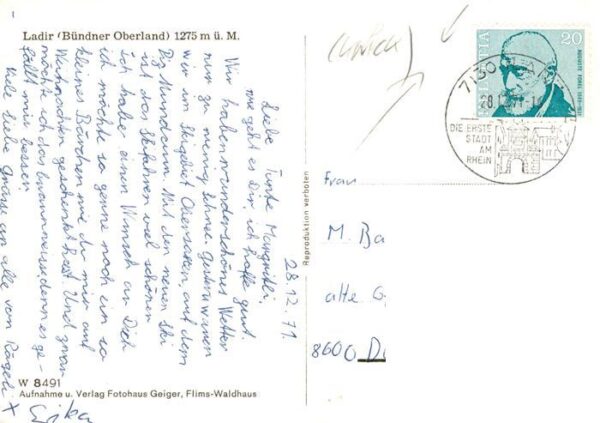 Ladir (Bündner Oberland) 1275 m ü. M.
28.12.71
Liebe Tante Margritli,
wie geht es Dir ich hoffe gut.
Wir haben wunderschönes Wetter
nur zu wenig Schnee. Gestern waren
wir im Skigebiet Obersaxen, auf dem
Piz Mundaun. Mit den neuen Ski
ist das Skifahren viel schöner
Ich habe einen Wunsch an Dich
ich möchte so gerne noch ein so
kleines Bärchen wie du mir auf
Weihnachten geschenkt hast. Und zwar
möchte ich das braune denn es ge-
fällt mir besser.
Viele liebe Grüsse an alle vom Rägeli
X
W 8491
Aufnahme u. Verlag Fotohaus Geiger, Flims-Waldhaus
Reproduktion verboten
HELVETIA
20
AUGUSTE FOREL 1848-1931
7130
DIE ERSTE
STADT
AM
RHEIN
Frau
M. Ba
alte G
8600 D